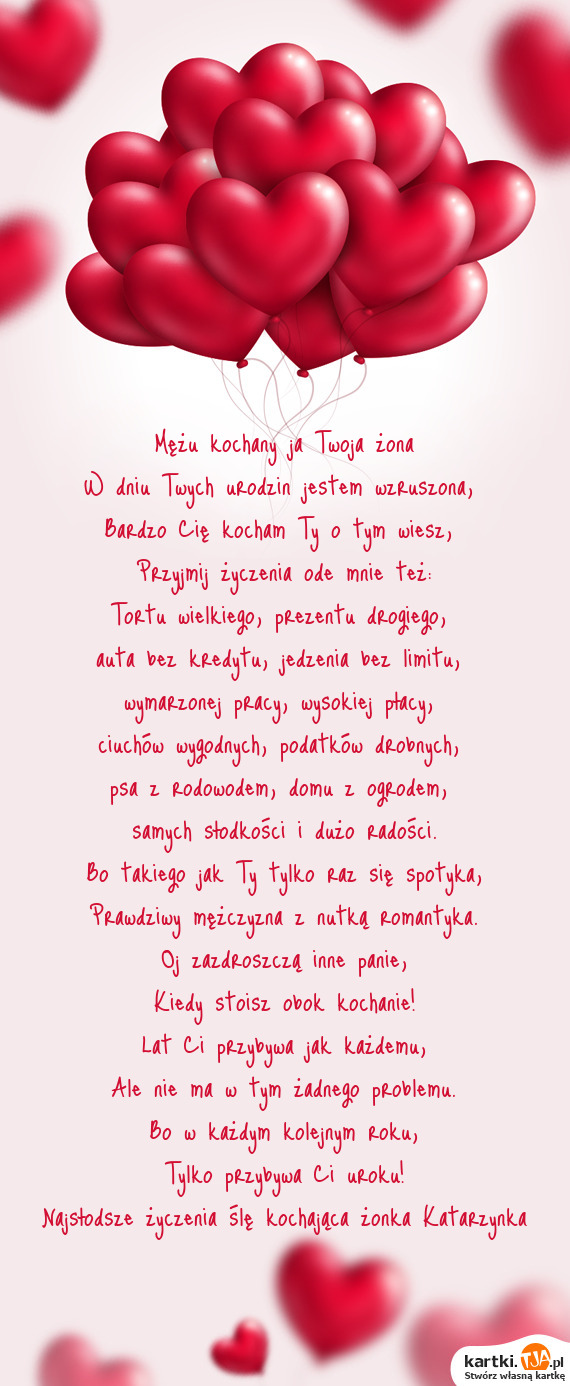 Mężu kochany ja Twoja żona
W dniu Twych urodzin jestem wzruszona,
Bardzo Cię kocham Ty o tym wiesz,
Przyjmij życzenia ode mnie też:
Tortu wielkiego, prezentu drogiego,
auta bez kredytu, jedzenia bez limitu,
wymarzonej pracy, wysokiej płacy,
ciuchów wygodnych, podatków drobnych,
psa z rodowodem, domu z ogrodem,
samych słodkości i dużo radości.
Bo takiego jak Ty tylko raz się spotyka,
Prawdziwy mężczyzna z nutką romantyka.
Oj zazdroszczą inne panie,
Kiedy stoisz obok kochanie!
Lat Ci przybywa jak każdemu,
Ale nie ma w tym żadnego problemu.
Bo w każdym kolejnym roku,
Tylko przybywa Ci uroku!
Najsłodsze życzenia ślę kochająca żonka Katarzynka
kartki.TJA.pl
Stwórz własną kartkę